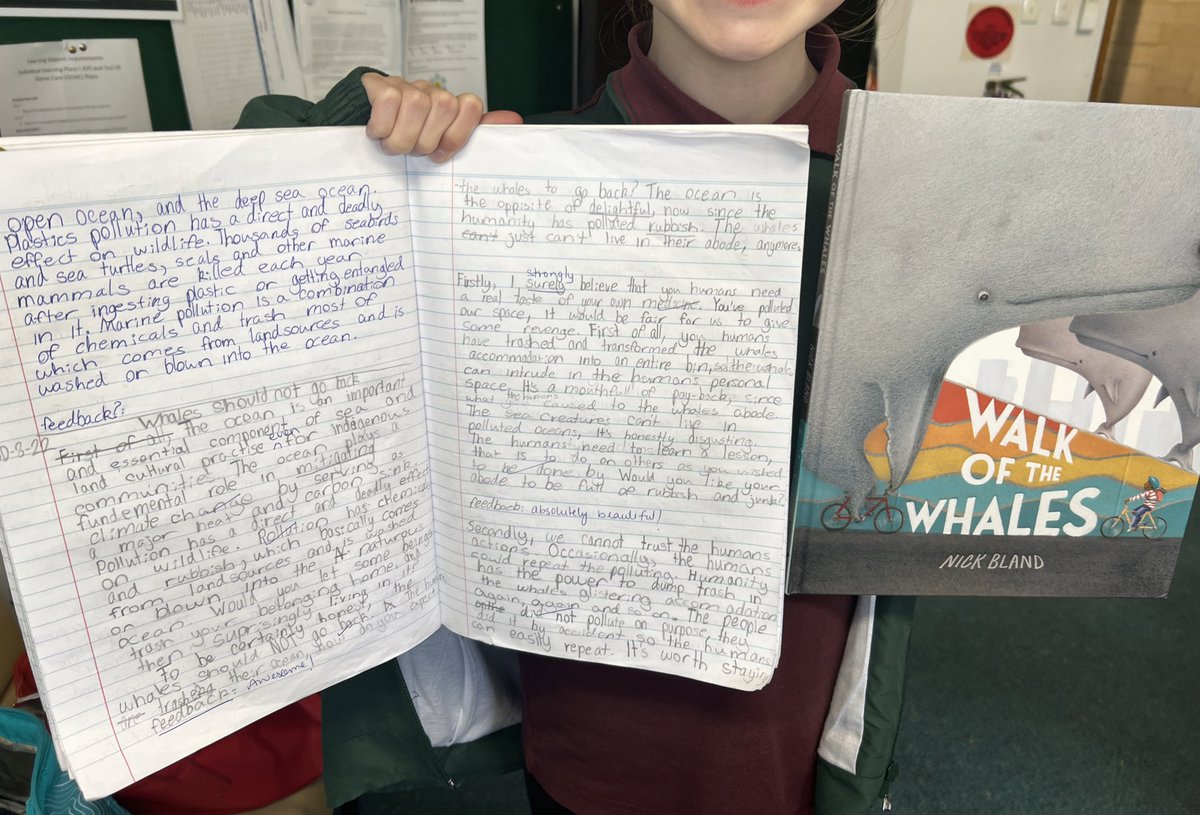 open ocean, and the deep sea ocean.
Plastics pollution has a direct and deadly
effect on wildlife. Thousands of seabirds
and sea turtles, seals and other marine
mammals are killed each year
after ingesting plastic or getting entangled
in it. Marine pollution is a combination
of chemicals and trash most of
which comes from landsources and is
washed or blown into the ocean.
feedback?:
Whales should not go back
First of all, The ocean is an important
and essential component of sea and
land cultural practise even for indigenous
communities. The ocean plays a
fundemental role in mitigating
climate change by serving as
a major heat and carbon sink.
Pollution has a direct and deadly effect
on wildlife. Pollution has chemicals
and rubbish, which basically comes
from landsources and is washed
or blown into the naturous
ocean. Would you let some beings
trash your belonging home, and
then suprisingly living in it?
to be certainly honest, the
whales should NOT go back to
are trashing their ocean, how do you expect
feedback: Awesome!
the whales to go back? The ocean is
the opisite of delightful, now since the
humanity has polluted rubbish. The whales
can't just can't live in their abode, anymore.
strongly
Firstly, I surely believe that you humans need
a real taste of your own medicine. You've polluted
our space, it would be fair for us to give
some revenge. First of all, you humans
have trashed and transformed the whales
accommodation into an entire bin, so the whale
can intrude in the humans personal
space, It's a mouthfull of pay-back, since
what the humans caused to the whales abode
The sea creatures can't live in
polluted oceans, It's honestly disgusting.
The humans need to learn a lesson,
that is to do on others as you wished
to be done by. Would you like your
abode to be full of rubbish and junk?
feedback: absolutely beautiful!
Secondly, we cannot trust the humans
actions. Occasionally, the humans
could repeat the polluting. Humanity
has the power to dump trash in
the whales glistering accomodation
again, again and so on. The people
did not pollute on purpose, they
did it by accident so the humans
can easily repeat. It's worth staying
WALK OF THE WHALES
WALK
OF THE
WHALES
NICK BLAND